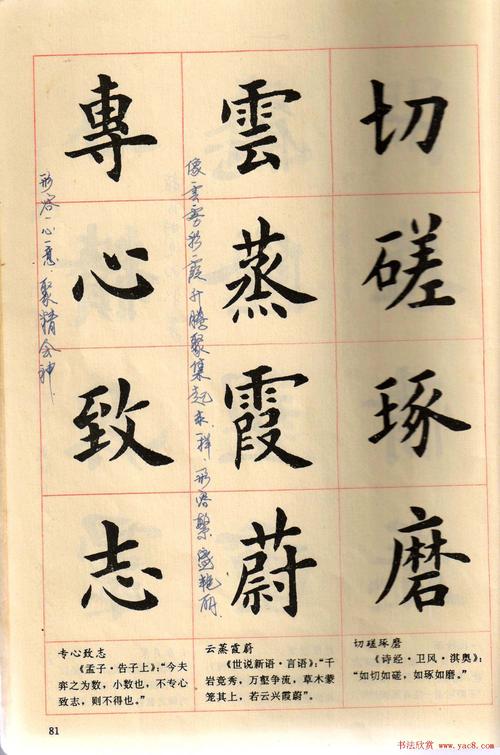 切磋琢磨
雲蒸霞蔚
像雲雾彩霞升腾聚集起来一样，形容繁盛艳丽
專心致志
形容一心一意，聚精会神
切磋琢磨
《诗经·卫风·淇奥》：
“如切如磋，如琢如磨。”
云蒸霞蔚
《世说新语·言语》：“千
岩竞秀，万壑争流，草木蒙
笼其上，若云兴霞蔚”。
专心致志
《孟子·告子上》：“今夫
弈之为数，小数也，不专心
致志，则不得也。”
81
书法欣赏 www.yac8.com